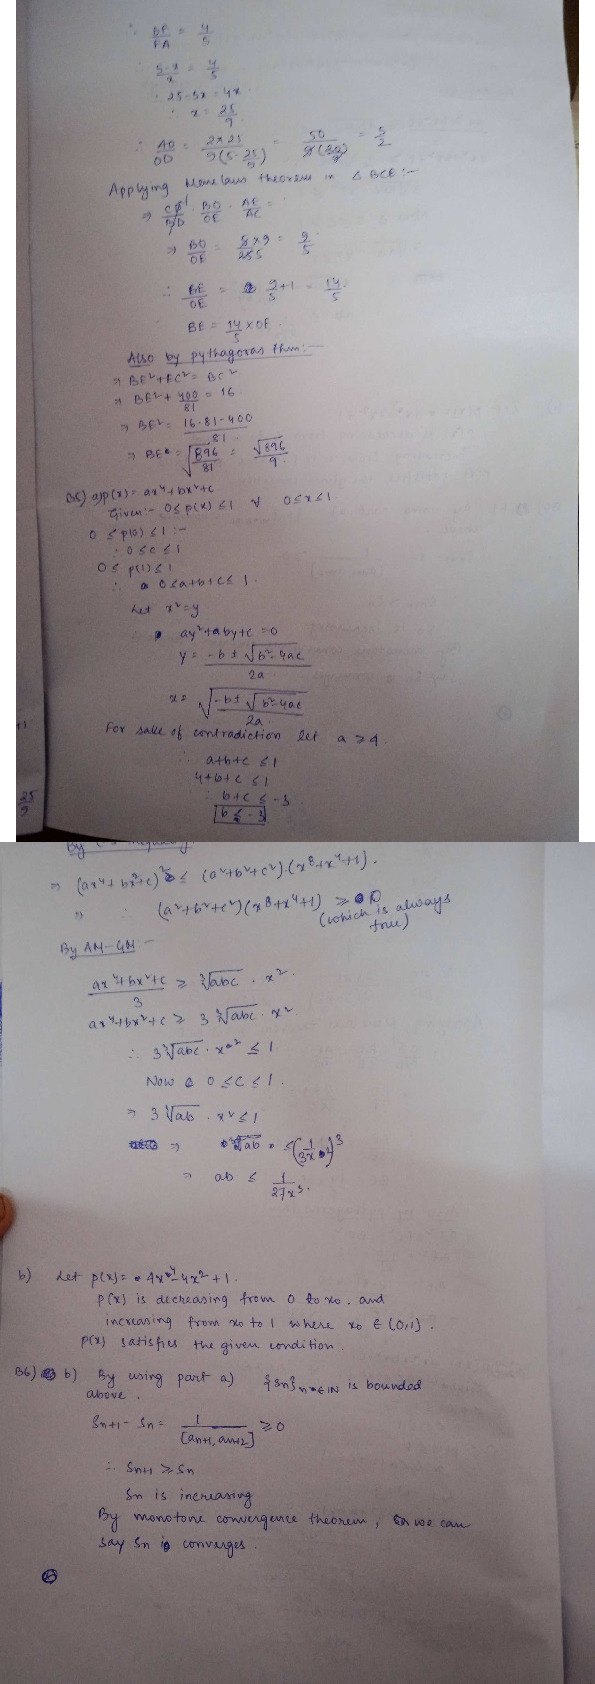 ∴ BF/FA = 4/5
∴ (5-x)/x = 4/5
∴ 25-5x = 4x
∴ x = 25/9
∴ AO/OD = 2×25/9(5-25/9) = 50/9(20/9) = 5/2
Applying Menelaus theorem in △ BCE :-
⇒ CD/BD · BO/OE · AE/AC =
⇒ BO/OE = 5×9/255 = 9/5
∴ BE/OE = 9/5 + 1 = 14/5
BE = 14/5 × OE
Also by pythagoras thm :-
⇒ BE² + EC² = BC²
⇒ BE² + 400/81 = 16
⇒ BE² = (16·81-400)/81
⇒ BE = √(896/81) = √896/9
B5) a) p(x) = ax⁴+bx²+c
Given:- 0≤p(x)≤1 ∀ 0≤x≤1
0 ≤ p(0) ≤ 1 :-
∴ 0≤c≤1
0≤ p(1)≤1
∴ 0≤a+b+c≤1.
Let x²=y
ay²+by+c=0
y = (-b ± √(b²-4ac))/2a
x = √((-b ± √(b²-4ac))/2a)
For sake of contradiction let a ≥ 4
∴ a+b+c ≤1
4+b+c ≤1
∴ b+c ≤ -3
b ≤ -3
25/9
⇒ (ax⁴+bx²+c)² ≤ (a²+b²+c²).(x⁸+x⁴+1).
⇒ (a²+b²+c²)(x⁸+x⁴+1) ≥ 0
(which is always
true)
By AM-GM -
(ax⁴+bx²+c)/3 ≥ ∛abc . x²
ax⁴+bx²+c ≥ 3 ∛abc . x²
∴ 3∛abc . x² ≤ 1
Now 0 ≤ c ≤ 1.
⇒ 3 ∛ab . x² ≤ 1
⇒ ab ≤ 1/27x³.
b) Let p(x) = 4x⁴-4x²+1.
p(x) is decreasing from 0 to x₀. and
increasing from x₀ to 1 where x₀ ∈ (0,1).
p(x) satisfies the given condition.
B6) b) By using part a) {Sn}n∈ℕ is bounded
above.
Sn+1 - Sn = 1/[an+1, an+2] ≥ 0
∴ Sn+1 ≥ Sn
Sn is increasing
By monotone convergence theorem, we can
say Sn converges.